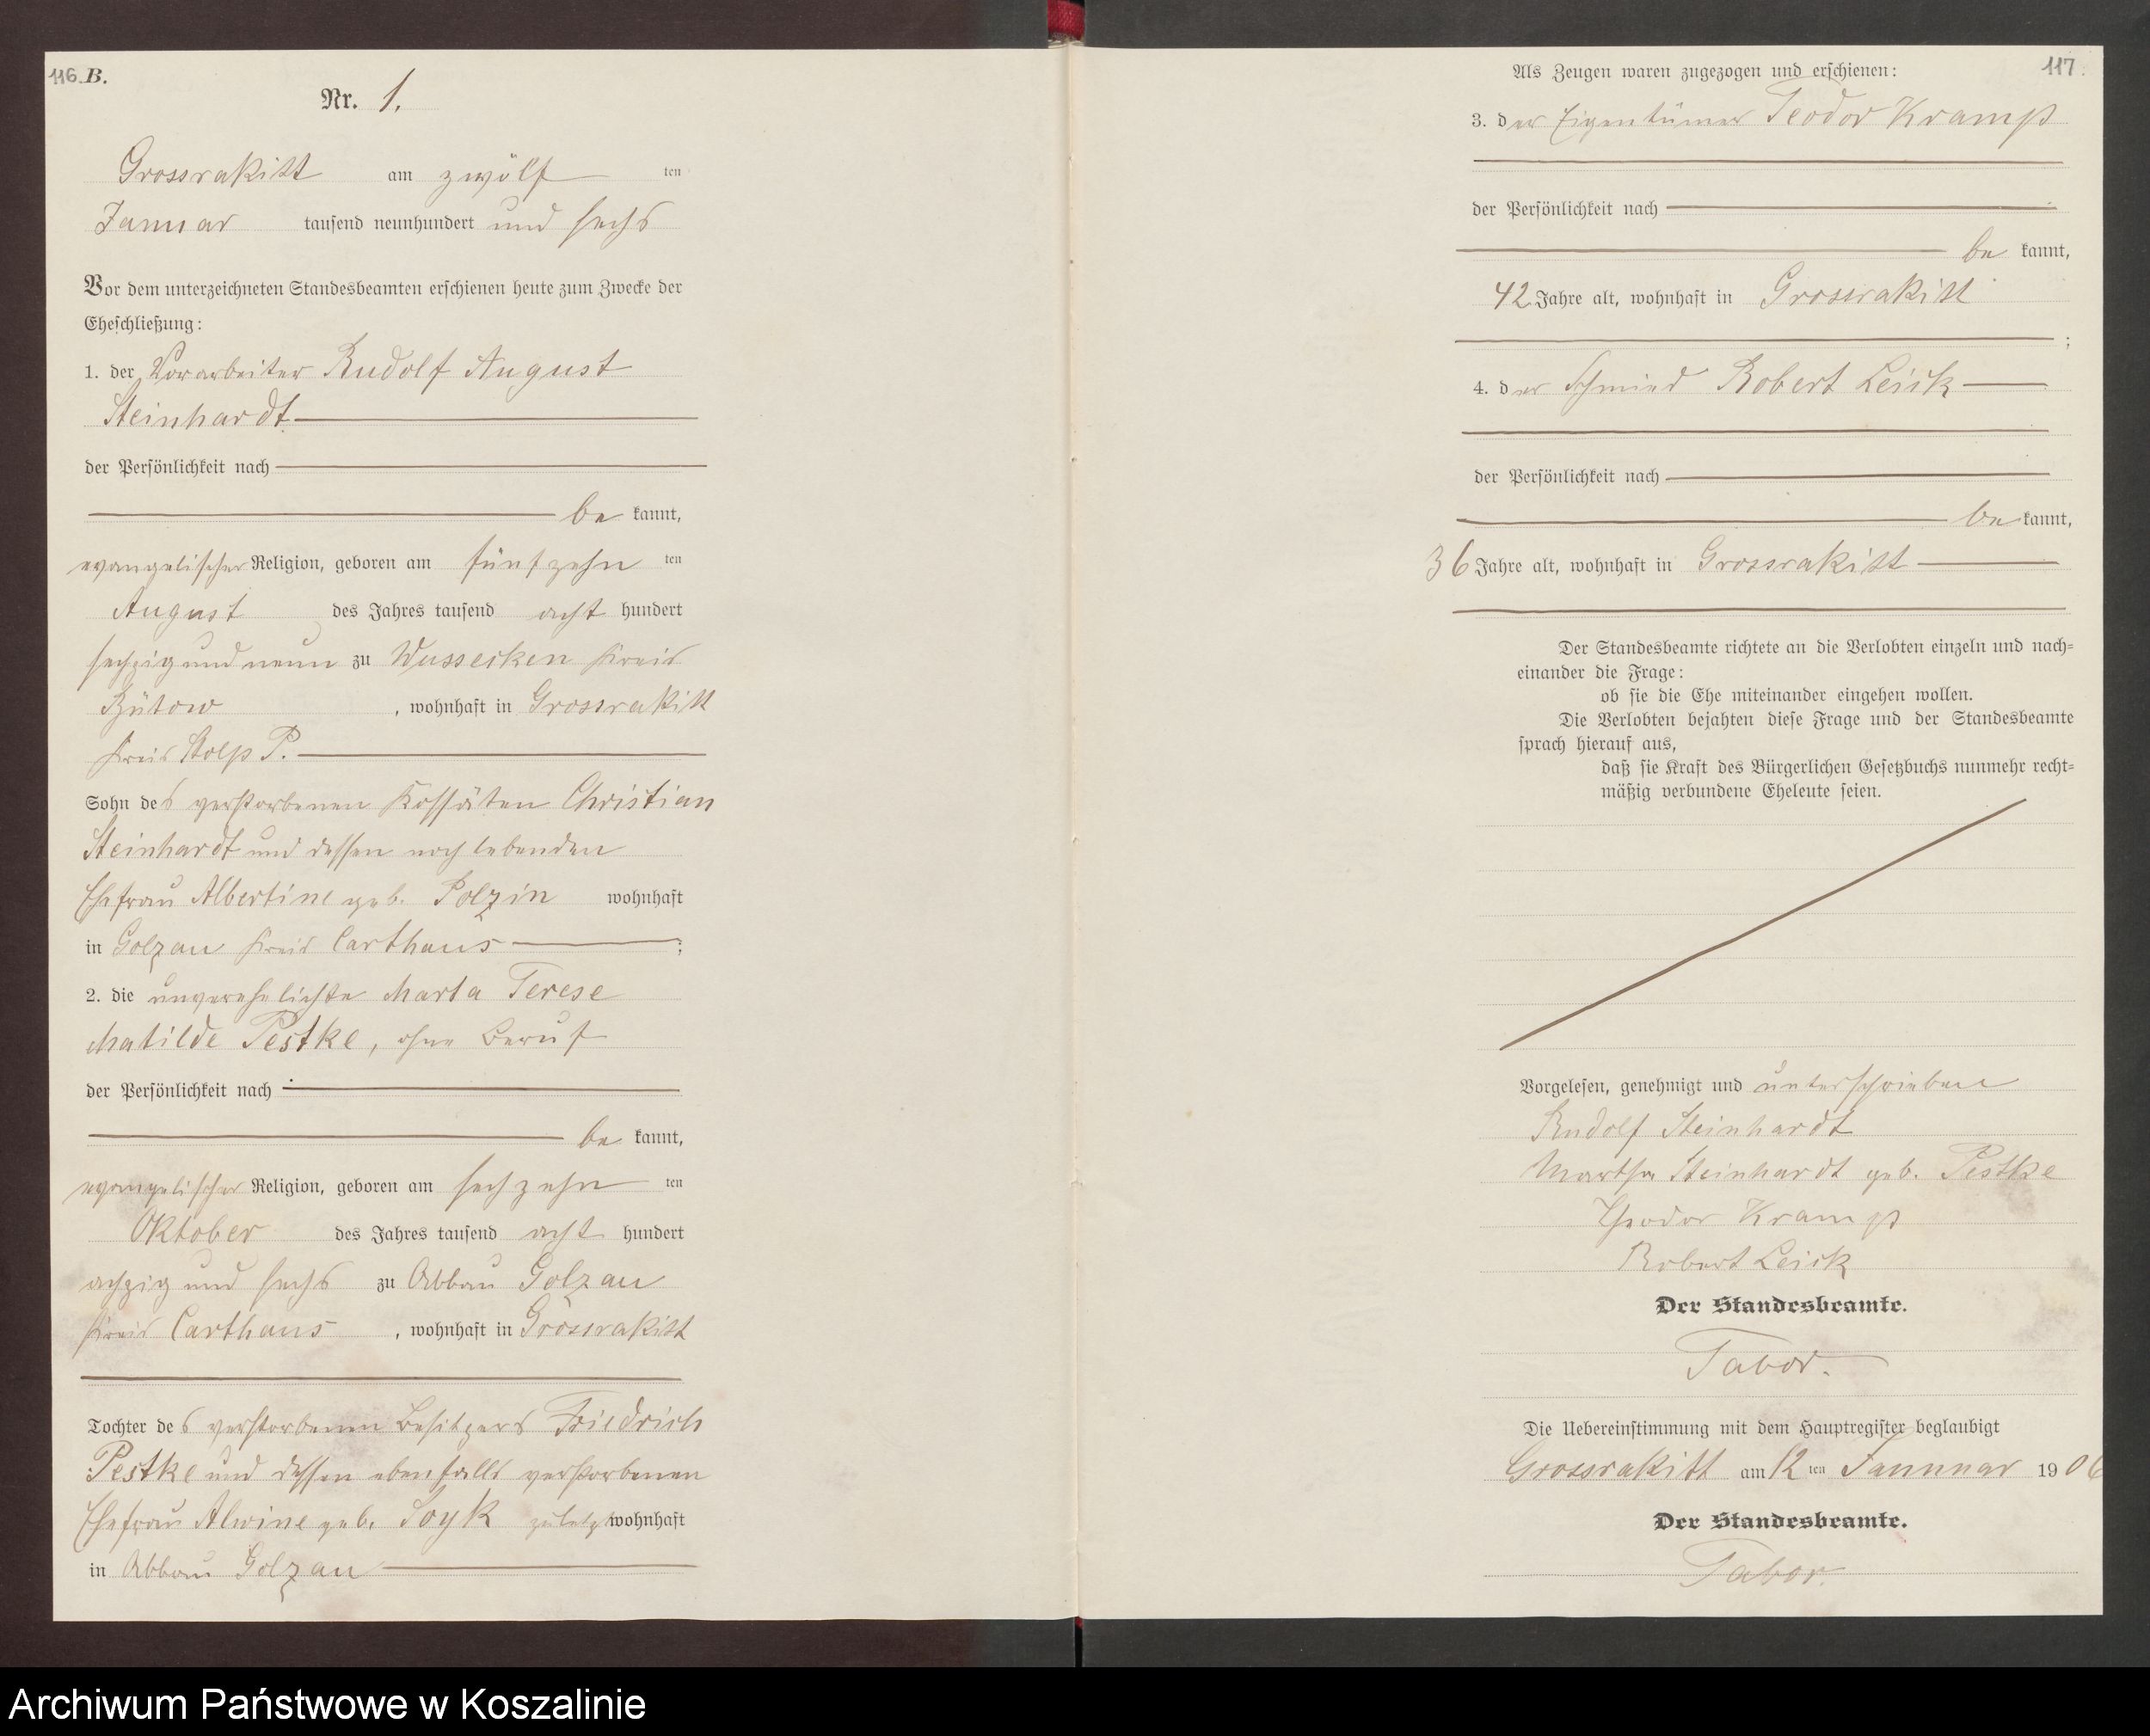 116. B.
Nr. 1.
Grossrakitt am zwölf ten
Januar tausend neunhundert und sechs
Vor dem unterzeichneten Standesbeamten erschienen heute zum Zwecke der
Eheschließung:
1. der Vorarbeiter Rudolf August
Steinhardt
der Persönlichkeit nach
be kannt,
evangelischer Religion, geboren am fünfzehn ten
August des Jahres tausend acht hundert
sechzig und neun zu Wussecken Kreis
Bütow , wohnhaft in Grossrakitt
Kreis Stolp P.
Sohn des verstorbenen Kossäten Christian
Steinhardt und dessen noch lebenden
Ehefrau Albertine geb. Polzin wohnhaft
in Golzau Kreis Carthaus ;
2. die unverehelichte Marta Terese
Matilde Pestke, ohne Beruf
der Persönlichkeit nach
be kannt,
evangelischer Religion, geboren am sechzehn ten
Oktober des Jahres tausend acht hundert
achzig und sechs zu Abbau Golzau
Kreis Carthaus , wohnhaft in Grossrakitt
Tochter des verstorbenen Besitzers Friedrich
Pestke und dessen ebenfalls verstorbenen
Ehefrau Alwine geb. Soyk zuletzt wohnhaft
in Abbau Golzau
117.
Als Zeugen waren zugezogen und erschienen:
3. der Eigentümer Teodor Kramp
der Persönlichkeit nach
be kannt,
42 Jahre alt, wohnhaft in Grossrakitt
;
4. der Schmied Robert Leick
der Persönlichkeit nach
be kannt,
36 Jahre alt, wohnhaft in Grossrakitt
Der Standesbeamte richtete an die Verlobten einzeln und nach-
einander die Frage:
ob sie die Ehe miteinander eingehen wollen.
Die Verlobten bejahten diese Frage und der Standesbeamte
sprach hierauf aus,
daß sie Kraft des Bürgerlichen Gesetzbuchs nunmehr recht-
mäßig verbundene Eheleute seien.
Vorgelesen, genehmigt und unterschrieben
Rudolf Steinhardt
Martha Steinhardt geb. Pestke
Theodor Kramp
Robert Leick
Der Standesbeamte.
Tabor.
Die Uebereinstimmung mit dem Hauptregister beglaubigt
Grossrakitt am 12 ten Januar 1906
Der Standesbeamte.
Tabor.
Archiwum Państwowe w Koszalinie